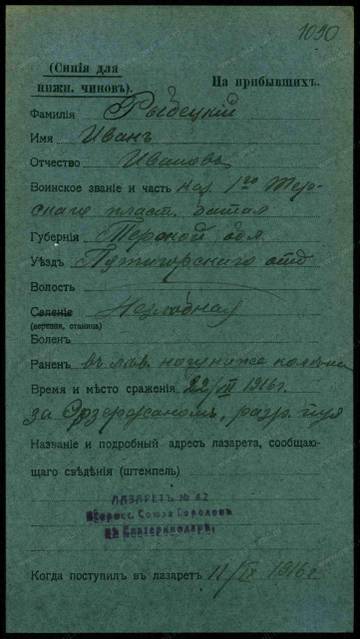 1090
(Синія для
нижн. чиновъ).
На прибывшихъ.
Фамилія Рыбецкій
Имя Иванъ
Отчество Ивановъ
Воинское званіе и часть каз. 1го Тер-
скаго пласт. батал
Губернія Терской обл.
Уѣздъ Пятигорскаго отд
Волость
Селеніе Незлобная
(деревня, станица)
Боленъ
Раненъ въ лѣв. ногу ниже колѣна
Время и мѣсто сраженія 22/III 1916г.
за, разр. пуля
Названіе и подробный адресъ лазарета, сообщаю-
щаго свѣдѣнія (штемпель)
ЛАЗАРЕТЪ № 42
Всеросс. Союза Городовъ
въ Екатеринодарѣ.
Когда поступилъ въ лазаретъ 11/IX 1916г